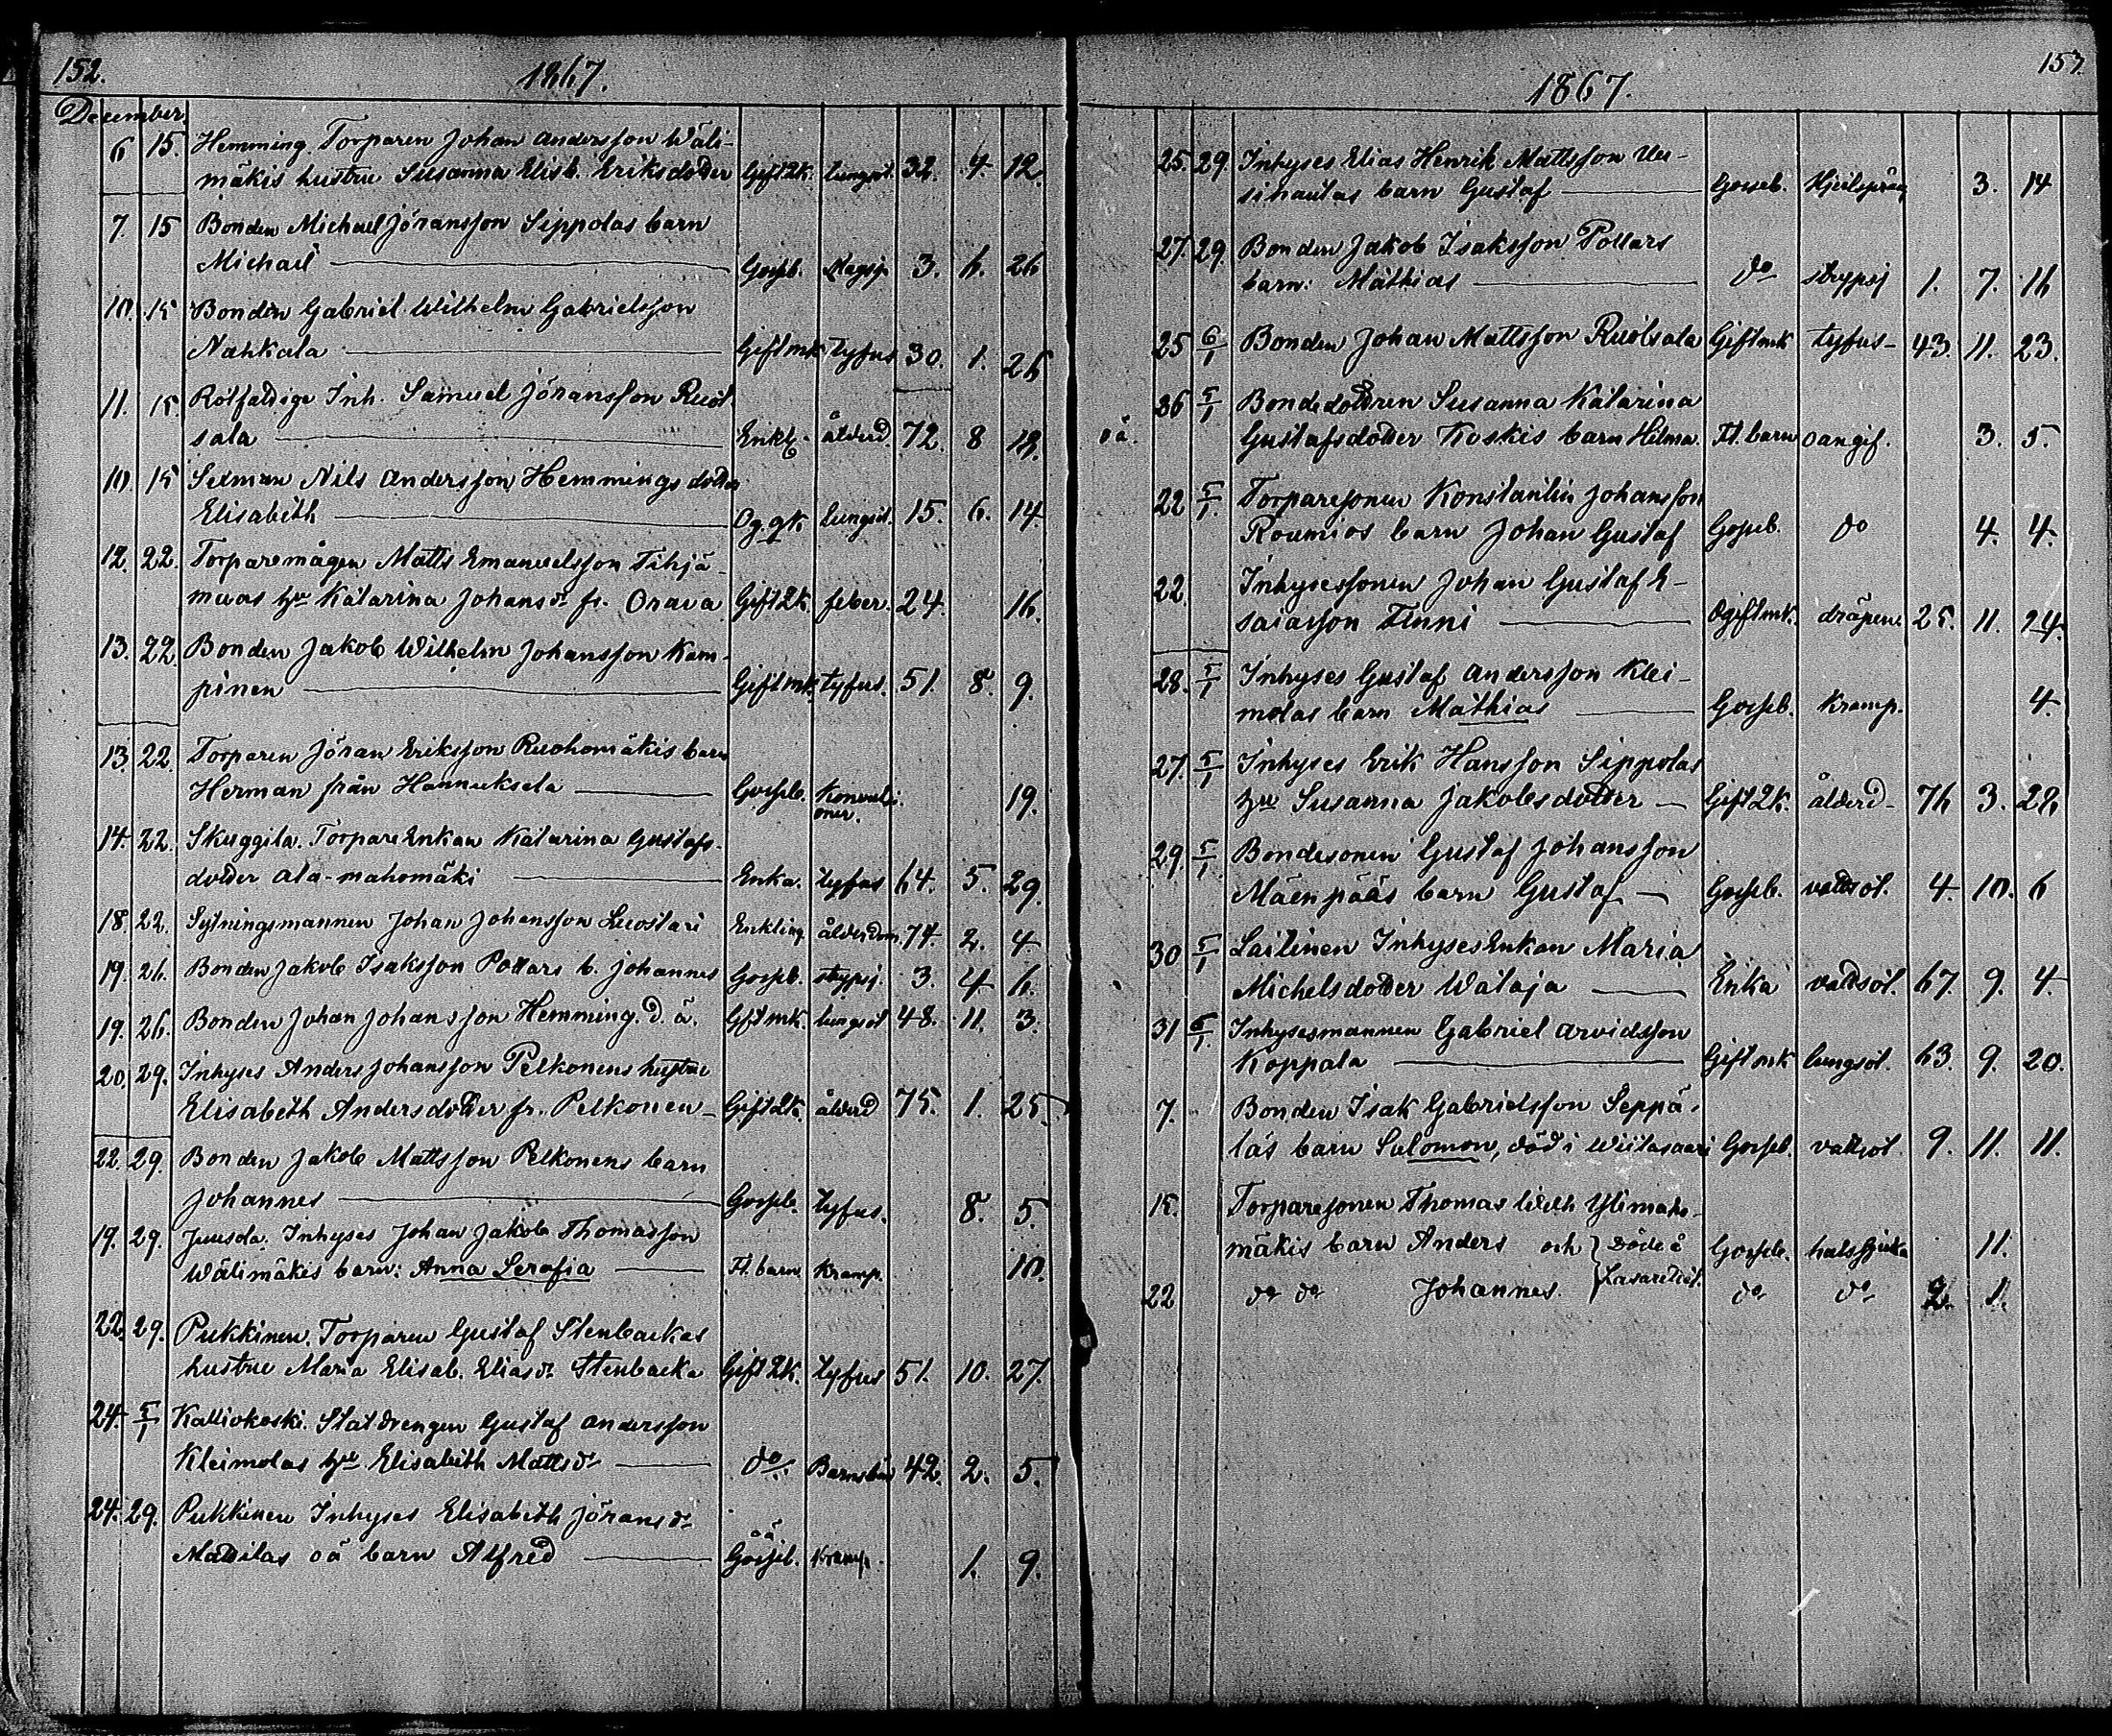 152.
1867.
December.
6 15. Hemming. Torparen Johan Andersson Wäli-
mäkis hustru Susanna Elisb. Eriksdotter Gift Qk. lungsot. 32. 4. 12.
7. 15 Bonden Michael Jöransson Sippolas barn
Michael Gosseb. Magsj. 3. 6. 26
10. 15 Bonden Gabriel Wilhelm Gabrielsson
Nahkala Gift mk tyfus 30. 1. 26
11. 15. Rotfaldige Inh. Samuel Jöransson Ruot-
sala Enkl. ålderd. 72. 8 18.
10. 15 Sexman Nils Andersson Hemmings dotter
Elisabeth Og. qk lungsot. 15. 6. 14.
12. 22. Torparemågen Matts Emanuelsson Tihjä-
maas hu Katarina Johansdr fr. Orava Gift Qk. feber. 24. 16.
13. 22. Bonden Jakob Wilhelm Johansson Kam-
pinen Gift mk. tyfus. 51. 8. 9.
13. 22. Torparen Jöran Eriksson Ruohomäkis barn
Herman från Hannuksela Gosseb. Konvulsi-
oner. 19.
14. 22. Skuggila. TorpareEnkan Katarina Gustafs-
dotter Ala-mahomäki Enka. tyfus 64. 5. 29.
18. 22. Sytningsmannen Johan Johansson Luostari Enkling ålderdom. 74. 2. 4.
19. 26. Bonden Jakob Isaksson Pottars b. Johannes Gosseb. strypsj. 3. 4 6.
19. 26. Bonden Johan Johansson Hemming. d. ä. Gift mk. lungsot 48. 11. 3.
20. 29. Inhyses Anders Johansson Pelkonens hustru
Elisabeth Andersdotter fr. Pelkonen Gift Qk. ålderd 75. 1. 25.
22. 29. Bonden Jakob Mattsson Pelkonens barn
Johannes Gosseb. tyfus. 8. 5.
19. 29. Juusola. Inhyses Johan Jakob Thomasson
Wälimäkis barn: Anna Serafia Fl. barn Kramp. 10.
22. 29. Pukkinen. Torparen Gustaf Stenbackas
hustru Maria Elisab. Eliasdr Stenbacka Gift Qk. tyfus 51. 10. 27.
24. 5/1 Kalliokoski. Statdrengen Gustaf Andersson
Kleimolas hu Elisabeth Mattsdr do Barnsbörd 42. 2. 5.
24. 29. Pukkinen Inhyses Elisabeth Jöransdr
Mattilas oä barn Alfred oä Gosseb. Kramp. 1. 9.
1867.
153.
25. 29. Inhyses Elias Henrik Mattsson Uu-
sihautas barn Gustaf Gosseb. Hjertsprång 3. 14
27. 29. Bonden Jakob Isaksson Pottars
barn: Mathias do strypsj 1. 7. 16
25 6/1 Bonden Johan Mattsson Ruotsala Gift mk tyfus 43. 11. 23.
26 5/1 Bondedottren Susanna Katarina
oä. Gustafsdotter Koskis barn Hilma. Fl. barn oangif. 3. 5.
22 5/1. Torparesonen Konstantin Johansson
Roumios barn Johan Gustaf Gosseb. do 4. 4.
22. Inhysessonen Johan Gustaf E-
saiasson Finni Ogift mk. dräpen. 25. 11. 24.
28. 5/1 Inhyses Gustaf Andersson Klei-
molas barn Mathias Gosseb. Kramp. 4.
27. 5/1 Inhyses Erik Hansson Sippolas
hu Susanna Jakobsdotter Gift Qk. ålderd 76 3. 28.
29. 5/1 Bondesonen Gustaf Johansson
Mäenpääs barn Gustaf Gosseb. vattsot. 4. 10. 6
30 5/1 Laitinen InhysesEnkan Maria
Michelsdotter Wataja Enka vattsot. 67. 9. 4.
31 6/1. Inhysesmannen Gabriel Arvidsson
Koppala Gift mk lungsot. 63. 9. 20.
7. Bonden Isak Gabrielsson Seppä-
läs barn Salomon, död i Wiitasaari Gosseb. vattsot. 9. 11. 11.
15. Torparesonen Thomas Wilh Ylimaho-
mäkis barn Anders och } Döde å Gosseb. halssjuka 11.
22 do do Johannes. } Lasarettet. do do 2. 1.